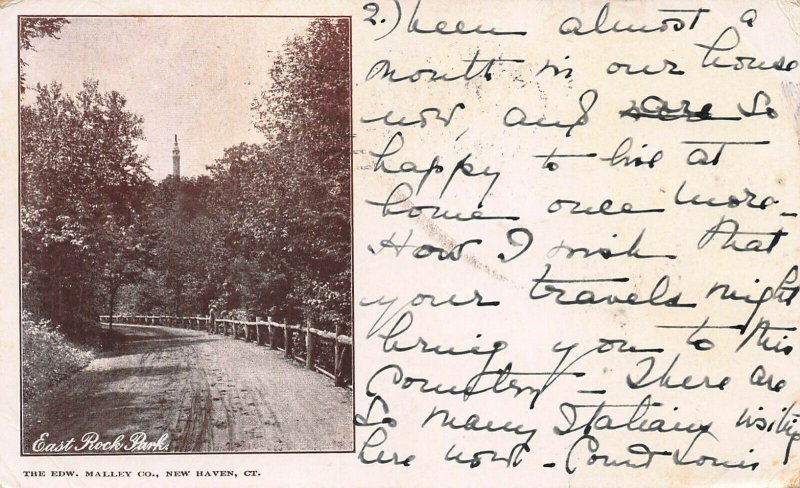 2.) been almost a
month in our house
now, and are so
happy to live at
home once more -
How I wish that
your travels might
bring you to this
Country - There are
so many Italians visiting
here now. - Count Louis
East Rock Park.
THE EDW. MALLEY CO., NEW HAVEN, CT.